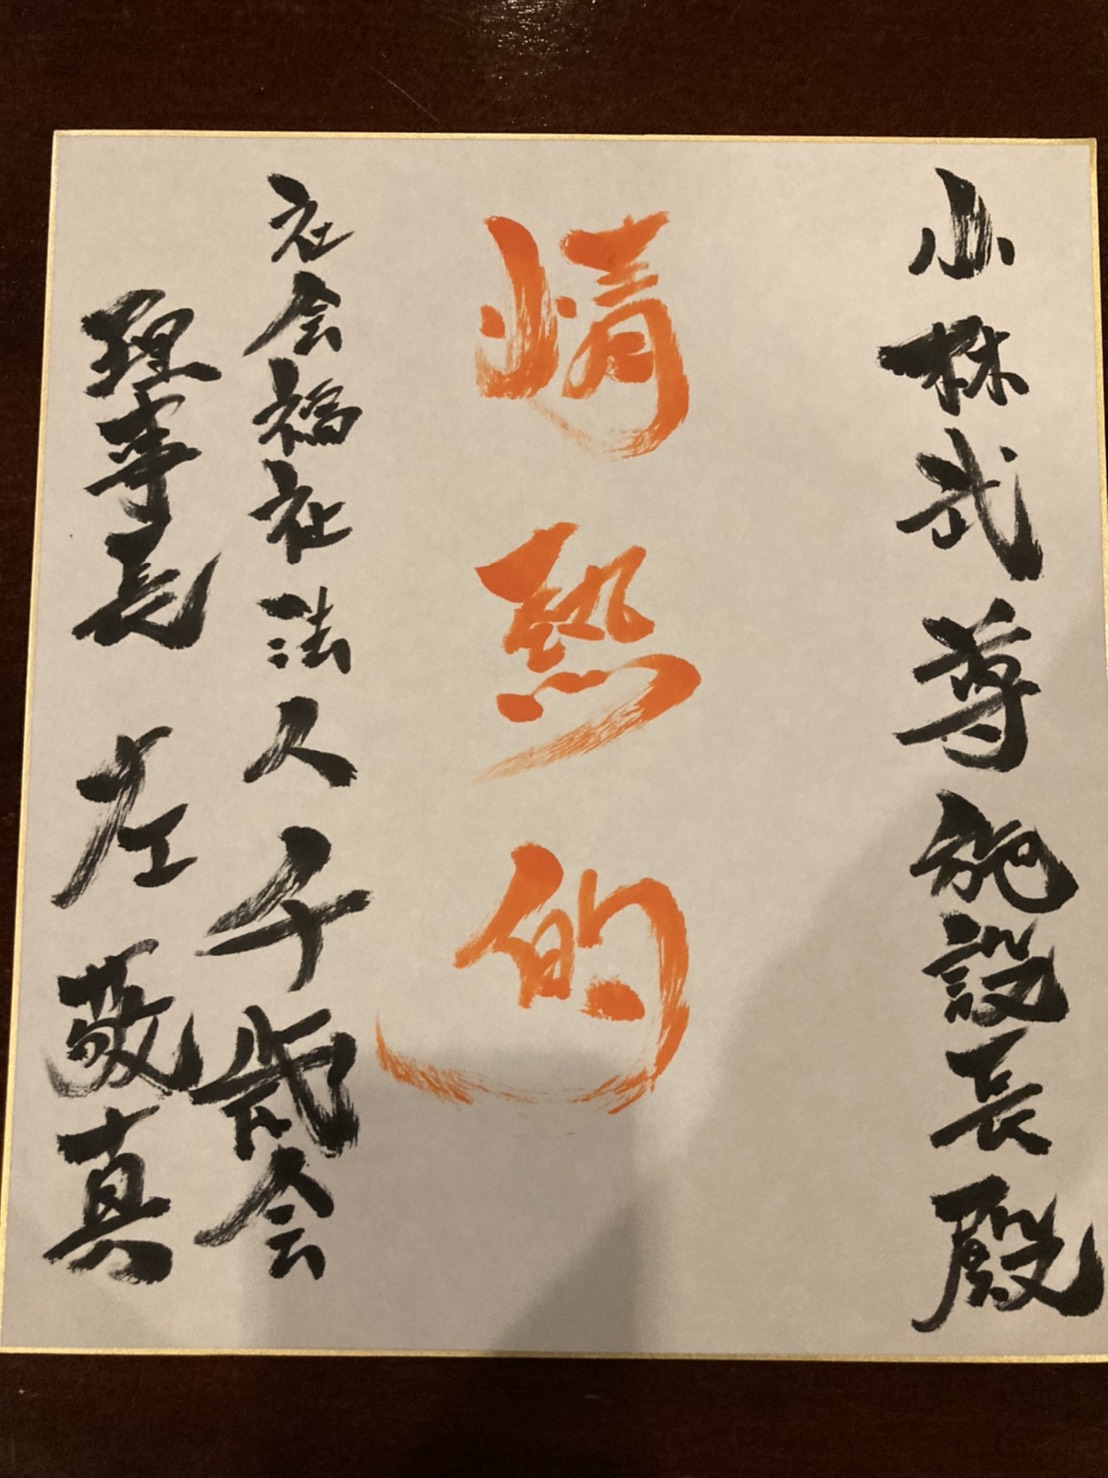 小林武尊施設長殿
情熱的
社会福祉法人千歳会
理事長 左敬真